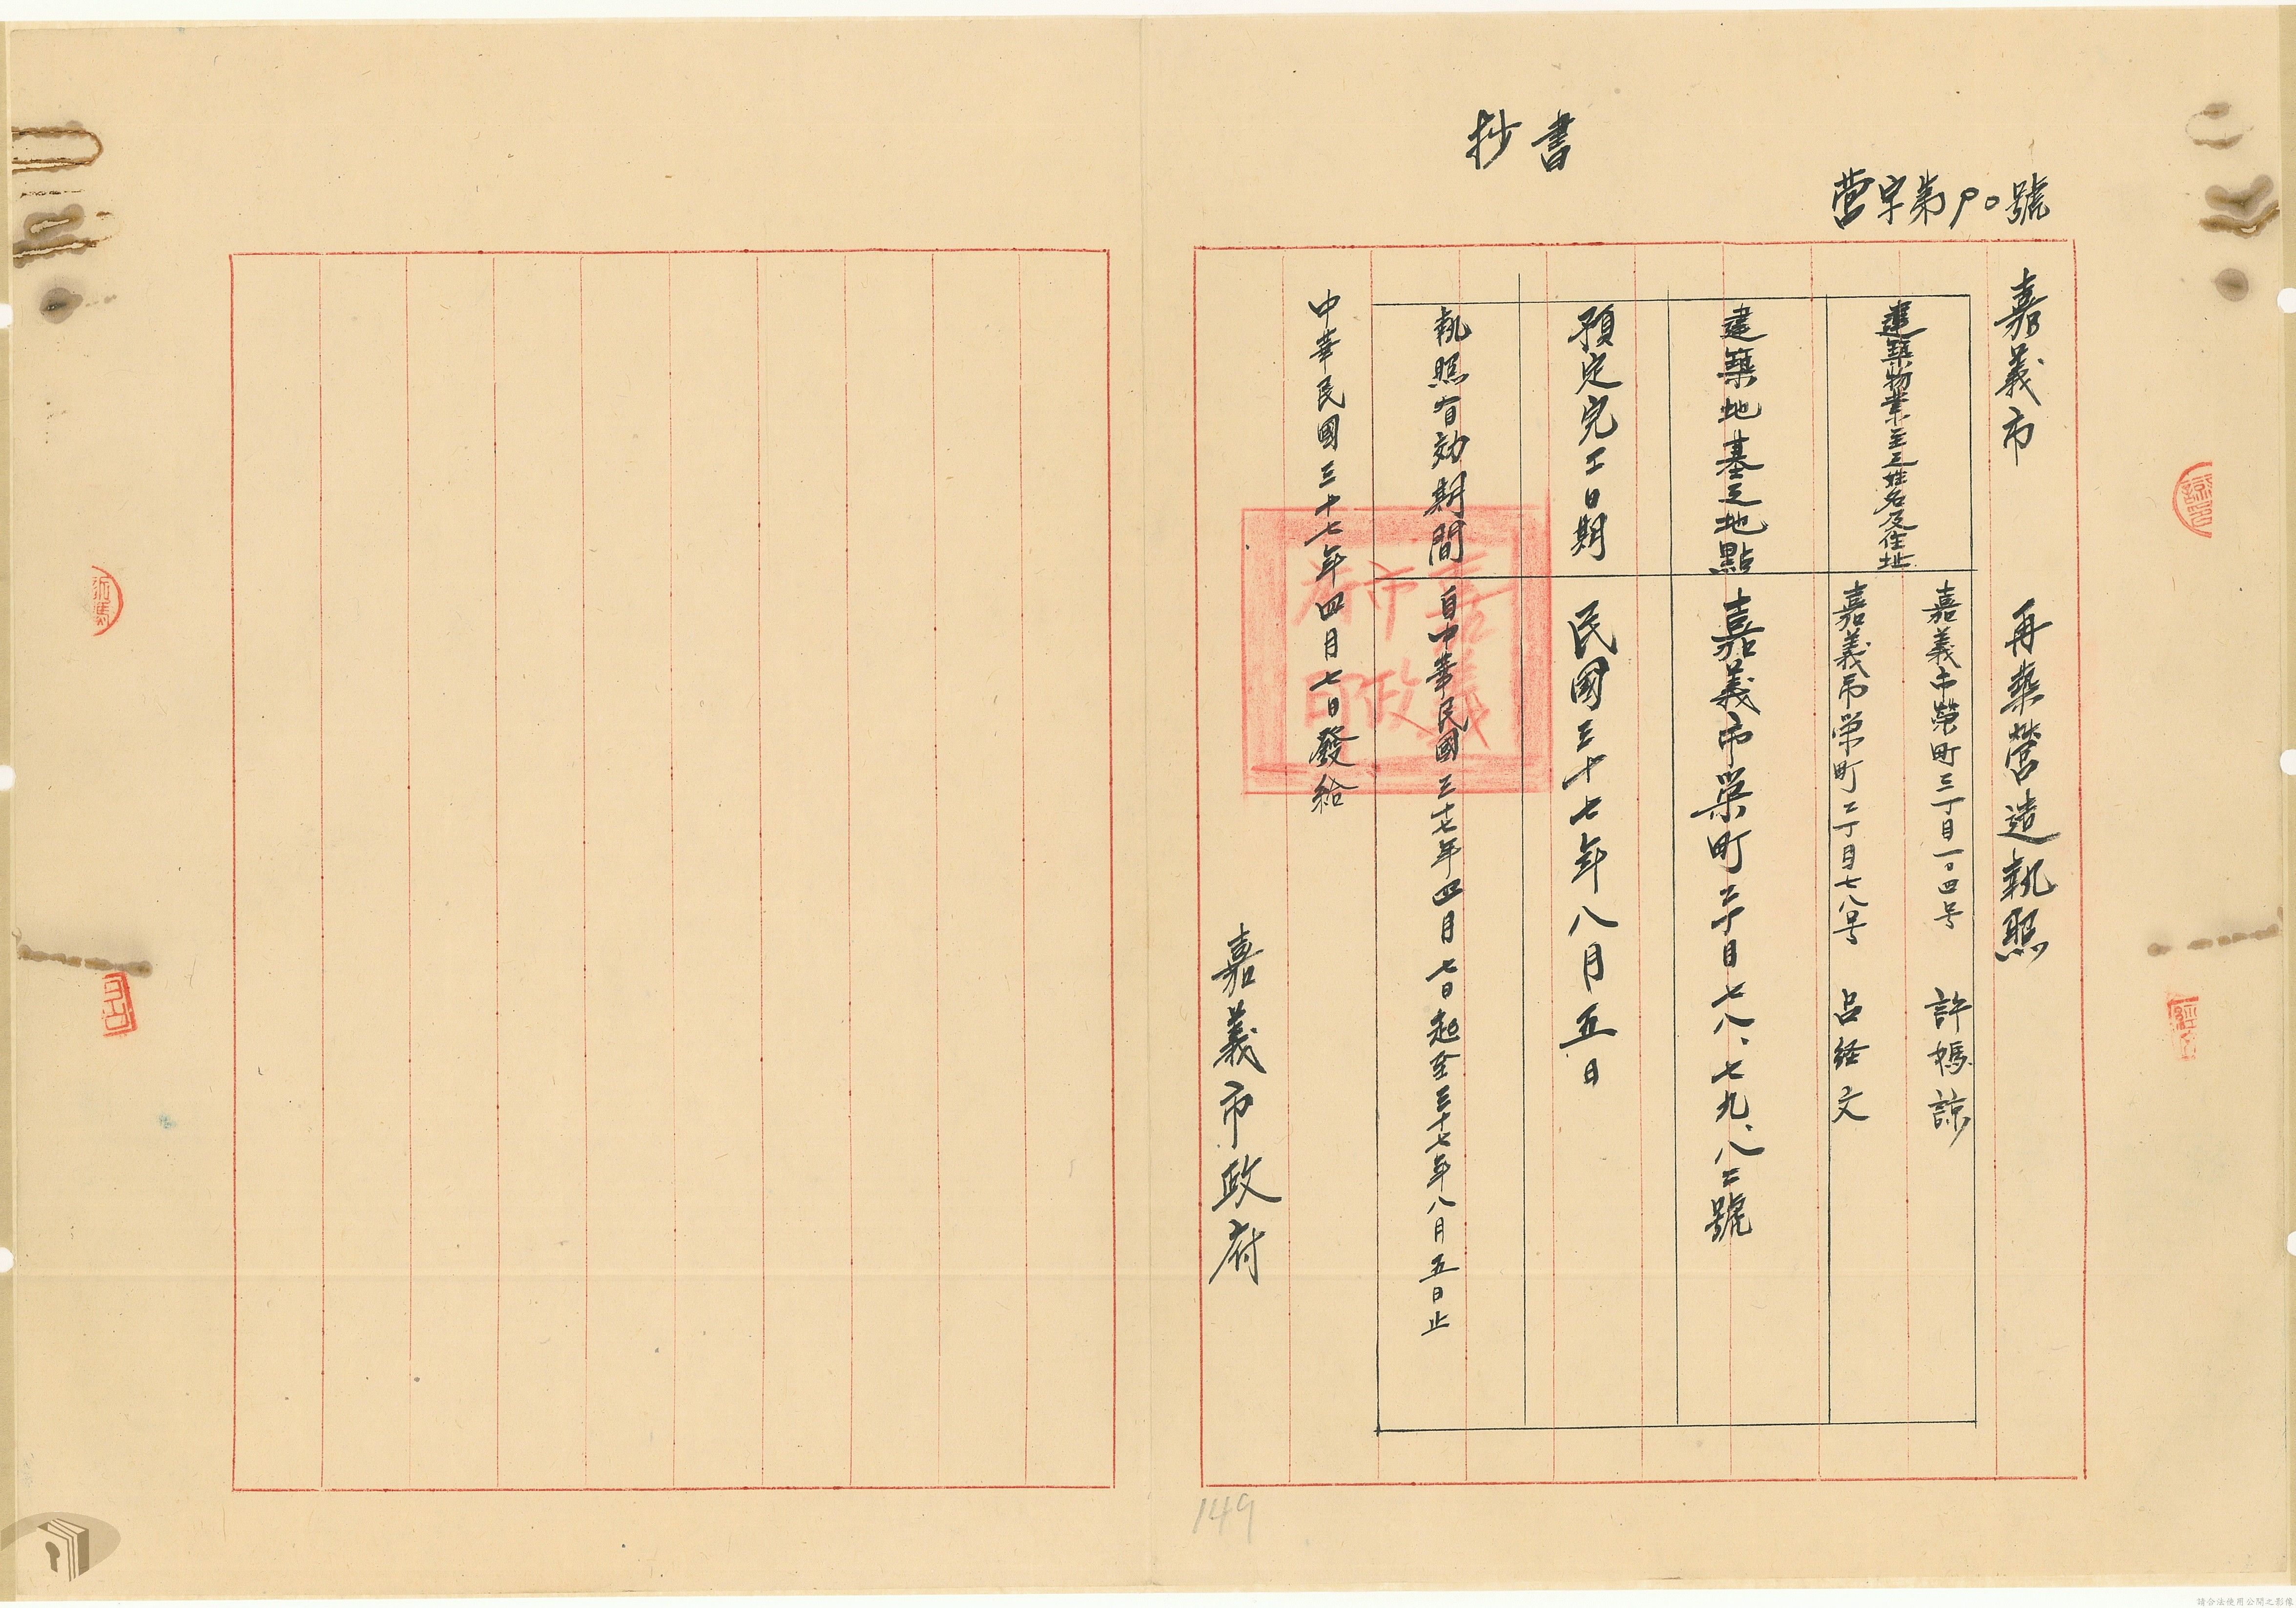 抄書
营字第90號
嘉義市　再築營造執照
建築物業主之姓名及住址
嘉義市榮町三丁目一〇四号　許媽諒
嘉義市栄町二丁目七八号　呂経文
建築地基之地點
嘉義市栄町二丁目七八、七九、八二號
預定完工日期
民國三十七年八月五日
執照有効期間
自中華民國三十七年四月七日起至三十七年八月五日止
中華民國三十七年四月七日發給
嘉義市政府
嘉義市政府印
149
請合法使用公開之影像